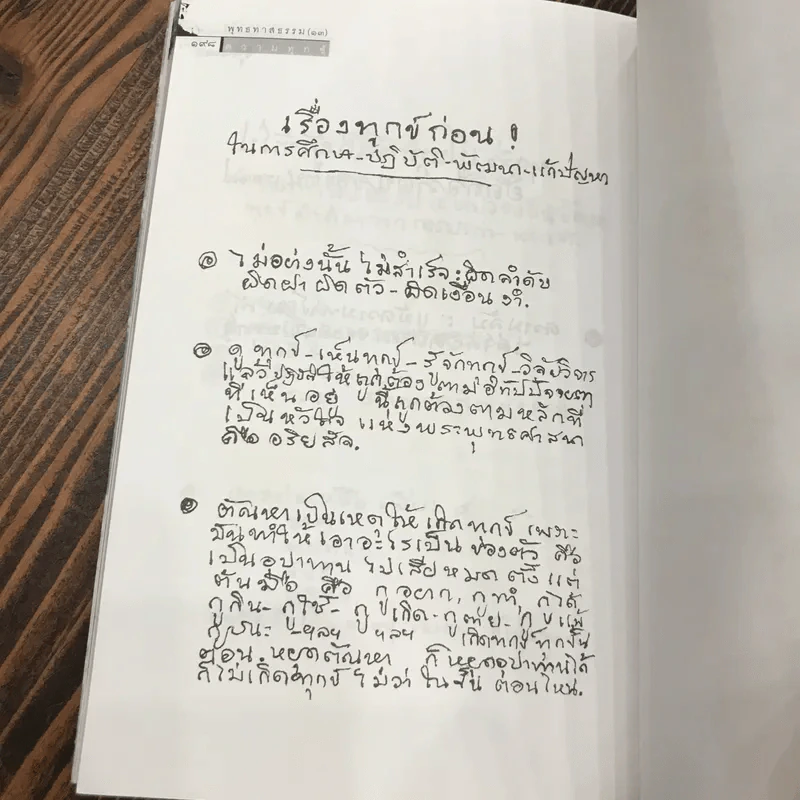 พุทธทาสธรรม(๑๓)
๑๙๘ ความทุกข์
เรื่องทุกข์ก่อน!
ในการศึกษา-ปฏิบัติ-พัฒนา-แก้ปัญหา
๏ ไม่อย่างนั้น ไม่สำเร็จ: ผิดลำดับ
ผิดฝา ผิดตัว-ผิดเงื่อนงำ.
๏ ดูทุกข์-เห็นทุกข์-รู้จักทุกข์-วิจัยวิจาร
แล้วปฏิบัติให้ถูกต้องตามอิทัปปัจจยตา
ที่เห็นอยู่ นี้ถูกต้องตามหลักที่
เป็นหัวใจ แห่งพระพุทธศาสนา
คือ อริยสัจ.
๏ ตัณหาเป็นเหตุให้เกิดทุกข์ เพราะ
มันทำให้เอาอะไรเป็นของตัว คือ
เป็นอุปาทาน ไปเสียหมด ตั้งแต่
ต้นมือ คือ กูอยาก, กูทำ, กูได้
กูกิน-กูใช้-กูเกิด-กูตาย-กูแพ้
กูชนะ -ฯลฯ ฯลฯ เกิดทุกข์ทุกขั้น
ตอน. หยุดตัณหา ก็หยุดอุปาทานได้
ก็ไม่เกิดทุกข์ ไม่ว่าในขั้นตอนไหน.